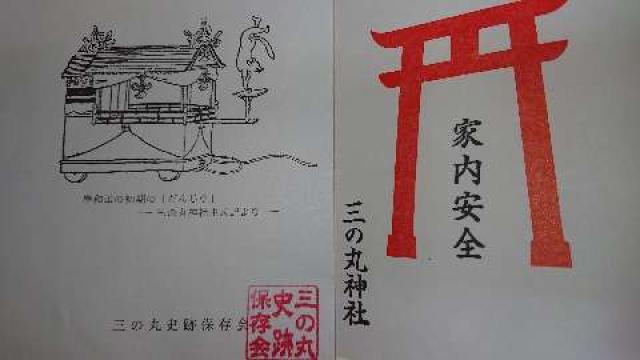 岸和田の初期の「だんじり」
三の丸史跡保存会
三の丸
史跡
保存会
家内安全
三の丸神社